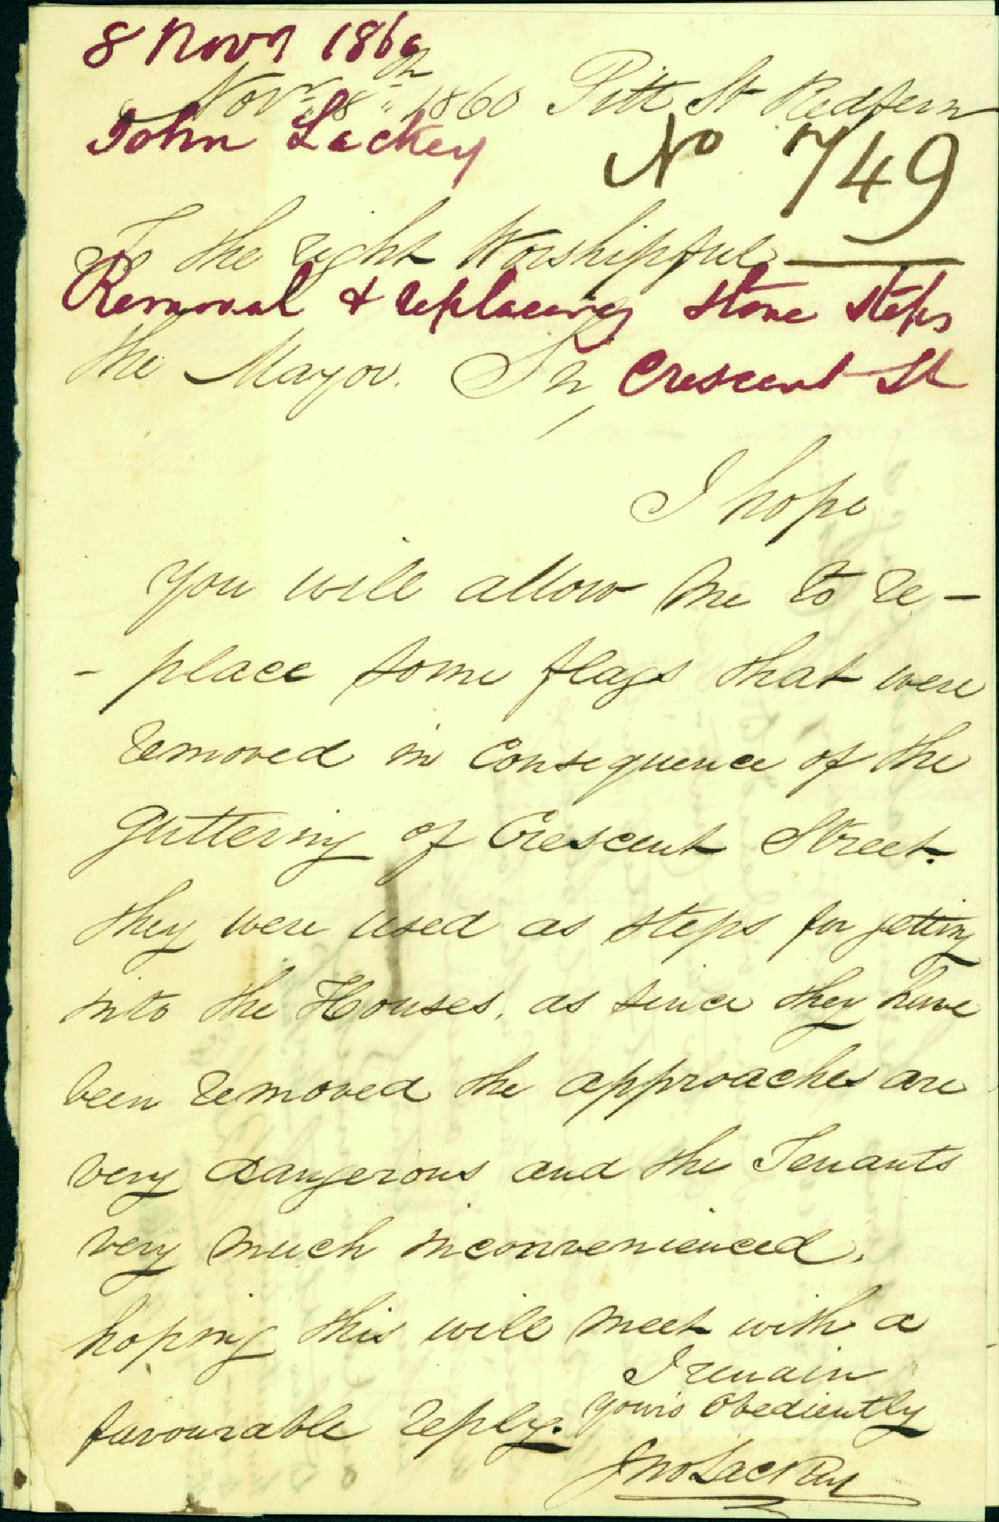 8 Novr 1860
Novr 8th 1860 Pitt St Redfern
John Lackey No 749
To the right Worshipful
Removal & replaceing stone steps
the Mayor. Sir, Crescent St
I hope
you will allow me to re-
- place some flags that were
removed in consequence of the
guttering of Crescent Street.
they were used as steps for getting
into the Houses. as since they have
been removed the approaches are
very dangerous and the Tenants
very much inconvenienced.
hoping this will meet with a
I remain
favourable reply. yours obediently
Jno Lackey